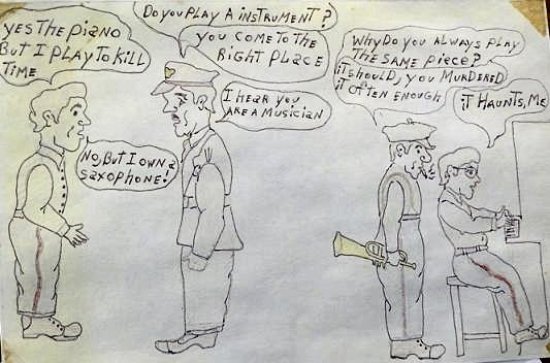 YES THE PIANO
BUT I PLAY TO KILL
TIME
DO YOU PLAY A INSTRUMENT?
YOU COME TO THE
RIGHT PLACE
I HEAR YOU
ARE A MUSICIAN
NO, BUT I OWN A
SAXOPHONE!
WHY DO YOU ALWAYS PLAY
THE SAME PIECE?
IT SHOULD, YOU MURDERED
IT OFTEN ENOUGH
IT HAUNTS, ME